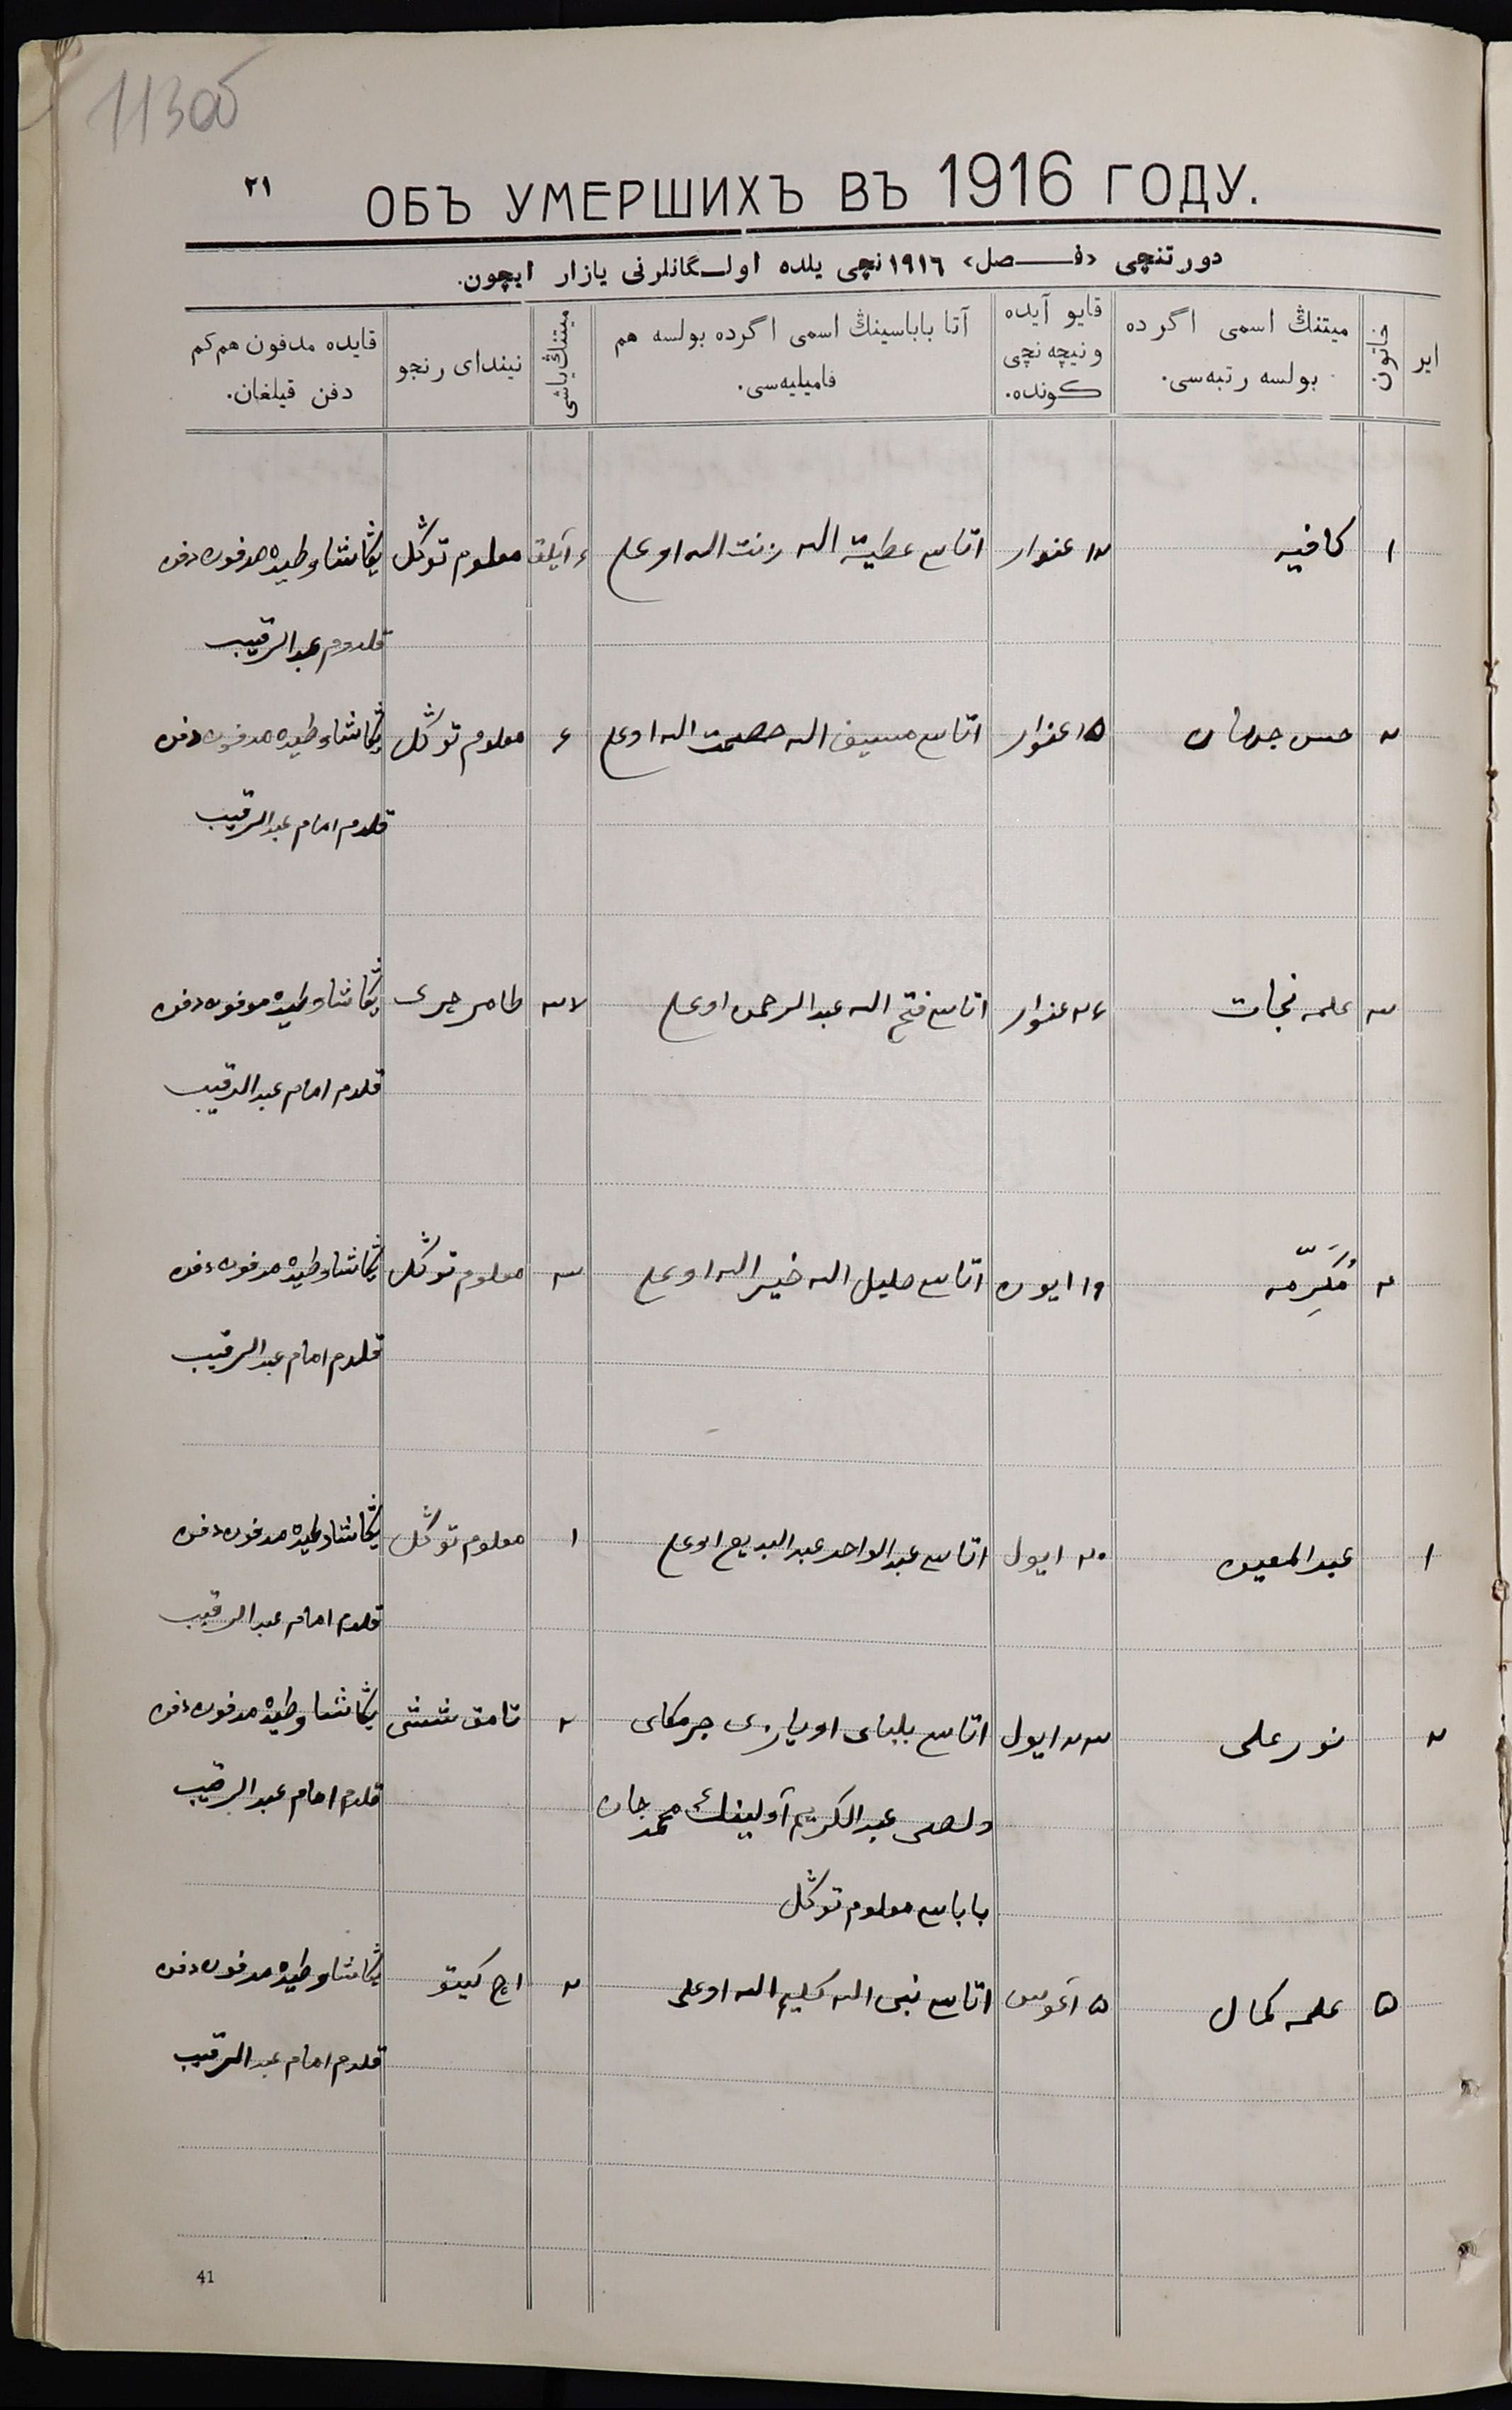 113об
٢١
ОБЪ УМЕРШИХЪ ВЪ 1916 ГОДУ.
دورتنچی «فـــصل» ١٩١٦نچی یلده اولـگانلرنی یازار ایچون.
ایر
خاتون
میتنڭ اسمی اگرده
بولسه رتبه‌سی.
قایو آیده
ونیچه نچی
کونده.
آتا باباسینڭ اسمی اگرده بولسه هم
فامیلیه‌سی.
میتنڭ یاشی
نیندای رنجو
قایده مدفون هم کم
دفن قیلغان.
١ کافیه عنوار اتاسی عطیة الله زنت الله اوغلی ٤ آیلق معلوم توگل یڭاشاوطیده مدفون دفن
قلدوم عبدالرقیب
٢ حسن جهان ١٥ عنوار اتاسی سیف الله عصمت الله اوغلی ٤ معلوم توگل یڭاشاوطیده مدفون دفن
قلدم امام عبدالرقیب
٣ علمه نجات ٢٤ عنوار اتاسی فتح الله عبدالرحمن اوغلی یڭاشاوطیده مدفون دفن
قلدم امام عبدالرقیب
٤ مُكَرِّمه ١٩ ایون اتاسی خلیل الله خیرالله اوغلی ٣ معلوم توگل یڭاشاوطیده مدفون دفن
قلدم امام عبدالرقیب
١ عبدالمعین ٢٠ ایول اتاسی عبدالواحد عبدالبدیع اوغلی ١ معلوم توگل یڭاشاوطیده مدفون دفن
قلدم امام عبدالرقیب
٢ نورعلی ٢٣ ایول اتاسی بلبای اویازی ٢ تامق ششی یڭاشاوطیده مدفون دفن
ولصی عبدالکریم آولینڭ محمدجان قلدم امام عبدالرقیب
باباسی معلوم توگل
٥ علمه کمال ٥ آغوس اتاسی نبی الله کلیم الله اوغلی ٢ اچ کیتو یڭاشاوطیده مدفون دفن
قلدم امام عبدالرقیب
41